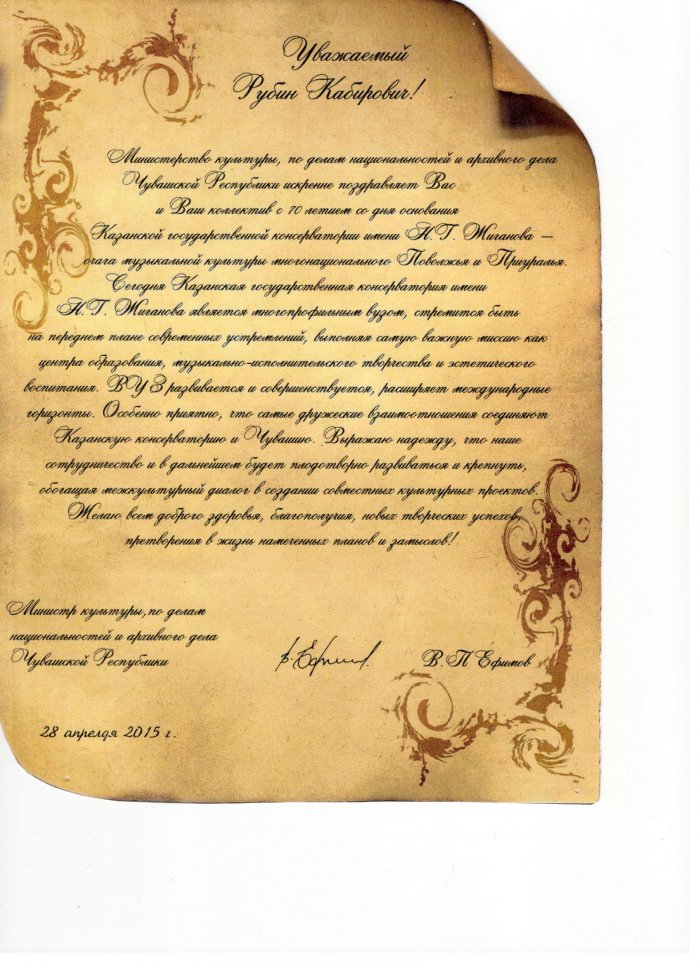 Уважаемый
Рубин Кабирович!
Министерство культуры, по делам национальностей и архивного дела
Чувашской Республики искренне поздравляет Вас
и Ваш коллектив с 70 летием со дня основания
Казанской государственной консерватории имени Н.Г. Жиганова –
очага музыкальной культуры многонационального Поволжья и Приуралья.
Сегодня Казанская государственная консерватория имени
Н.Г. Жиганова является многопрофильным вузом, стремится быть
на переднем плане современных устремлений, выполняя самую важную миссию как
центра образования, музыкально-исполнительского творчества и эстетического
воспитания. ВУЗ развивается и совершенствуется, расширяет международные
горизонты. Особенно приятно, что самые дружеские взаимоотношения соединяют
Казанскую консерваторию и Чувашию. Выражаю надежду, что наше
сотрудничество и в дальнейшем будет плодотворно развиваться и крепнуть,
обогащая межкультурный диалог в создании совместных культурных проектов.
Желаю всем доброго здоровья, благополучия, новых творческих успехов,
претворения в жизнь намеченных планов и замыслов!
Министр культуры, по делам
национальностей и архивного дела
Чувашской Республики
В. Ефимов
В. П Ефимов
28 апреля 2015 г.